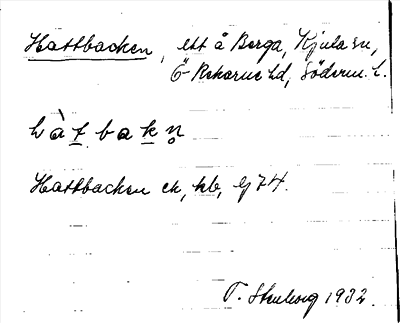 Hattbacken, ett å Berga, Kjula sn,
Ö Rekarne hd, Söderm. l.
hàtbakn̥
Hattbacken ek, hb, Ej 74.
1932.